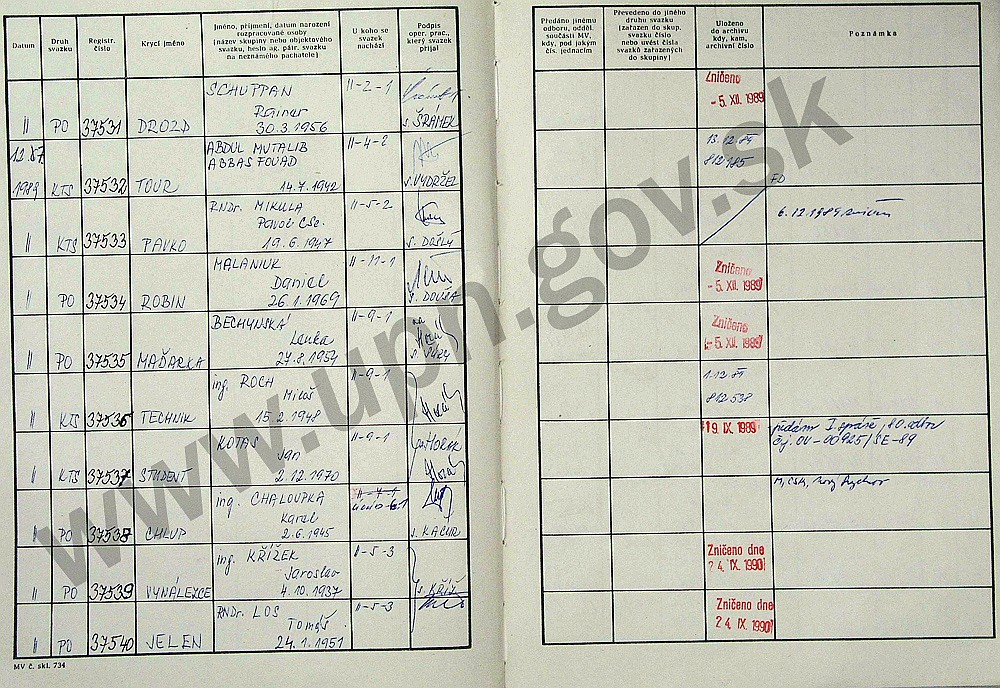 Datum
Druh svazku
Registr. číslo
Krycí jméno
Jméno, příjmení, datum narození rozpracované osoby (název skupiny nebo objektového svazku, heslo ag. pátr. svazku na neznámého pachatele)
U koho se svazek nachází
Podpis oper. prac., který svazek přijal
Předáno jinému odboru, odděl. součásti MV, kdy, pod jakým čís. jednacím
Převedeno do jiného druhu svazku (zařazen do skup. svazku číslo nebo uvést čísla svazků zařazených do skupiny)
Uloženo do archivu kdy, kam, archivní číslo
Poznámka
SCHUPPAN II-2-1 Zničeno
Rainer - 5. XII. 1989
II PO 37531 DROZD 30.3.1956 s. ŠRÁMEK
12.87 ABDUL MUTALIB II-4-2 13.12.89
ABBAS FOUAD 812185
1989 KTS 37532 TOUR 14.7.1942 s. VYDRŽEL
RNDr. MIKULA II-5-2
Pavol CSc. 6.12.1989
II KTS 37533 PAVKO 19.6.1947 s. DOŠLÝ
MALANIUK II-11-1 Zničeno
Daniel - 5. XII. 1989
II PO 37534 ROBIN 26.1.1969 s. DOUŠA
BECHYNSKÁ II-9-1 Zničeno
Lenka - 5. XII. 1989
II PO 37535 MAĎARKA 27.8.1954
ing. ROCH II-9-1 1.12.89
Miloš 812538
II KTS 37536 TECHNIK 15.2.1948
KOTAS II-9-1 HORÁK 19. IX. 1989 I. správě, 80. odbor
Jan čj. OV-00925/SE-89
II KTS 37537 STUDENT 2.12.1970
ing. CHALOUPKA II-7-1
Karel
II PO 37538 CHLUP 2.6.1945 s. KACUR
ing. KŘÍŽEK II-5-3 Zničeno dne
Jaroslav 24. IX. 1990
II PO 37539 VYNÁLEZCE 4.10.1937 s. KŘÍŽ
RNDr. LOS II-5-3 Zničeno dne
Tomáš 24. IX. 1990
II PO 37540 JELEN 24.1.1951
MV č. skl. 734
www.upn.gov.sk